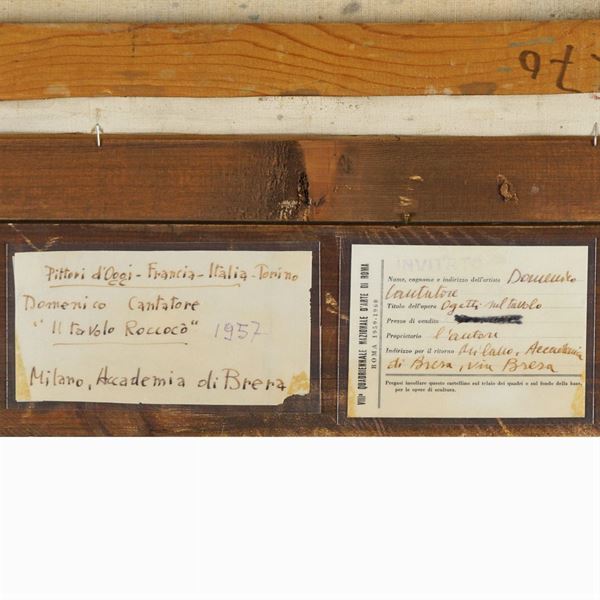 70
Pittori d'Oggi - Francia - Italia - Torino
Domenico Cantatore
"Il tavolo Roccocò" 1957
Milano, Accademia di Brera
VIIIª QUADRIENNALE NAZIONALE D'ARTE DI ROMA
ROMA 1959-1960
INVITATO
Nome, cognome e indirizzo dell'artista Domenico
Cantatore
Titolo dell'opera Oggetti sul tavolo
Prezzo di vendita
Proprietario l'autore
Indirizzo per il ritorno Milano, Accademia
di Brera, via Brera
Pregasi incollare questo cartellino sul telaio dei quadri e sul fondo della base,
per le opere di scultura.